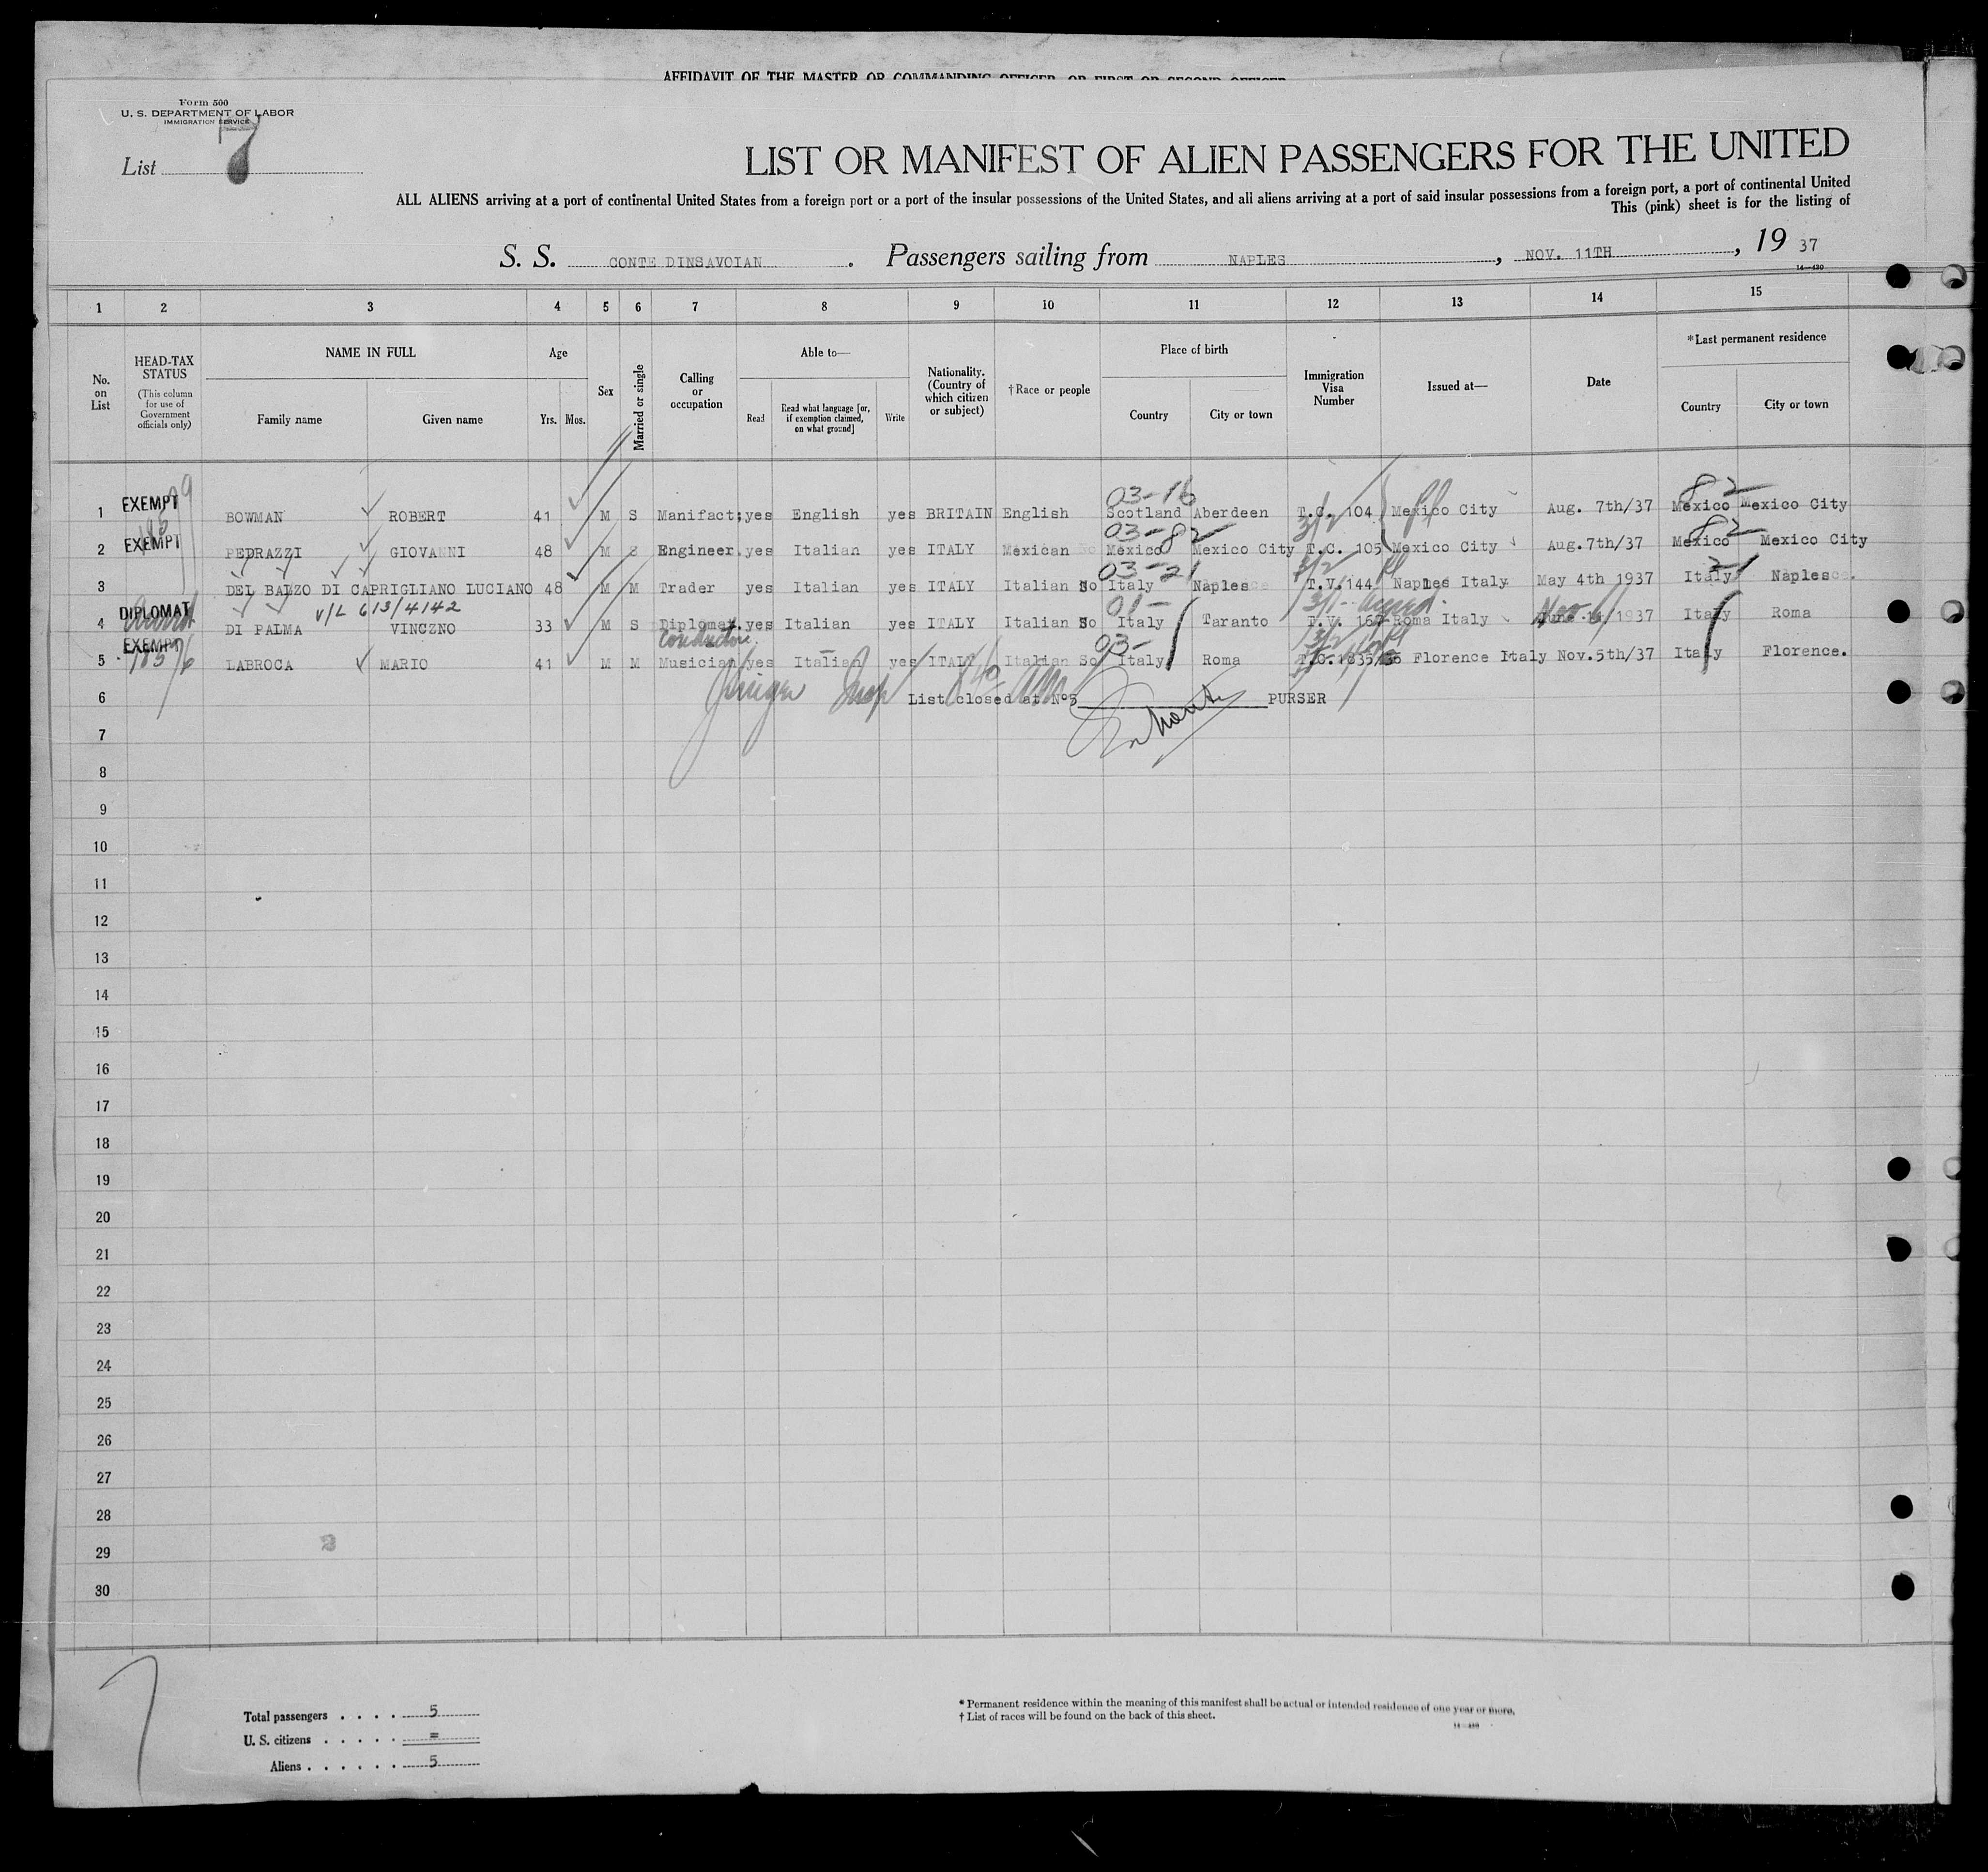 AFFIDAVIT OF THE MASTER OR COMMANDING OFFICER, OR FIRST OR SECOND OFFICER
Form 500
U. S. DEPARTMENT OF LABOR
IMMIGRATION SERVICE
List 7
LIST OR MANIFEST OF ALIEN PASSENGERS FOR THE UNITED
ALL ALIENS arriving at a port of continental United States from a foreign port or a port of the insular possessions of the United States, and all aliens arriving at a port of said insular possessions from a foreign port, a port of continental United
This (pink) sheet is for the listing of
S. S. CONTE DINSAVOIAN. Passengers sailing from NAPLES, NOV. 11TH, 19 37
14—430
1 2 3 4 5 6 7 8 9 10 11 12 13 14 15
No. on List
HEAD-TAX STATUS
(This column for use of Government officials only)
NAME IN FULL
Family name Given name
Age
Yrs. Mos.
Sex
Married or single
Calling or occupation
Able to—
Read
Read what language [or, if exemption claimed, on what ground]
Write
Nationality. (Country of which citizen or subject)
†Race or people
Place of birth
Country City or town
Immigration Visa Number
Issued at—
Date
*Last permanent residence
Country City or town
03-16 82
1 EXEMPT BOWMAN ROBERT 41 M S Manifact; yes English yes BRITAIN English Scotland Aberdeen T.C. 104 Mexico City Aug. 7th/37 Mexico Mexico City
03-82 3/2 82
2 EXEMPT PEDRAZZI GIOVANNI 48 M S Engineer. yes Italian yes ITALY Mexican So Mexico Mexico City T.C. 105 Mexico City Aug.7th/37 Mexico Mexico City
03-21 3/2 21
3 DEL BALZO DI CAPRIGLIANO LUCIANO 48 M M Trader yes Italian yes ITALY Italian So Italy Naples T.V.144 Naples Italy May 4th 1937 Italy Naples.
V/L 613/4142 01- 3/1- Nov
4 DIPLOMAT DI PALMA VINCZNO 33 M S Diplomat. yes Italian yes ITALY Italian So Italy Taranto T.V. 167 Roma Italy 1937 Italy Roma
Conductor. 03- 3/2
5 EXEMPT LABROCA MARIO 41 M M Musician yes Italian yes ITALY Italian So Italy Roma Florence Italy Nov.5th/37 Italy Florence.
6 Insp List closed at Nº5 PURSER
7
8
9
10
11
12
13
14
15
16
17
18
19
20
21
22
23
24
25
26
27
28
29
30
Total passengers . . . . 5
U. S. citizens . . . . . =
Aliens . . . . . . 5
* Permanent residence within the meaning of this manifest shall be actual or intended residence of one year or more.
† List of races will be found on the back of this sheet.